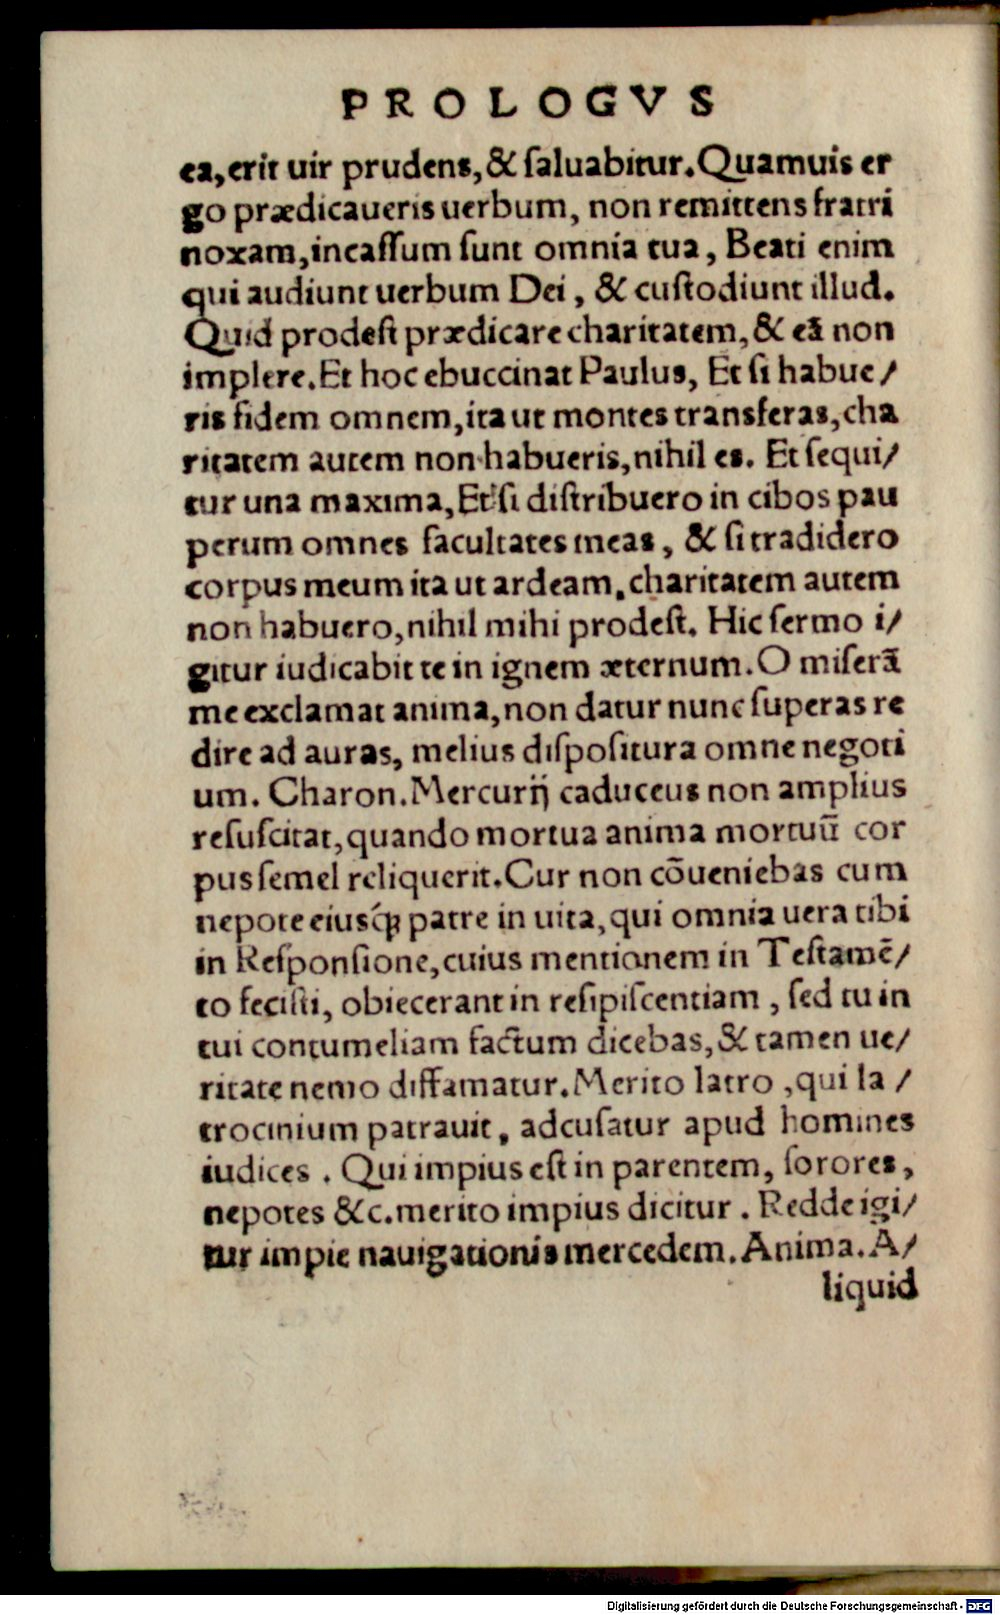 PROLOGVS
ea, erit uir prudens, & saluabitur. Quamuis er
go prædicaueris uerbum, non remittens fratri
noxam, incassum sunt omnia tua, Beati enim
qui audiunt uerbum Dei, & custodiunt illud.
Quid prodest prædicare charitatem, & eā non
implere. Et hoc ebuccinat Paulus, Et si habue/
ris fidem omnem, ita ut montes transferas, cha
ritatem autem non habueris, nihil es. Et sequi/
tur una maxima, Et si distribuero in cibos pau
perum omnes facultates meas, & si tradidero
corpus meum ita ut ardeam, charitatem autem
non habuero, nihil mihi prodest. Hic sermo i/
gitur iudicabit te in ignem æternum. O miserā
me exclamat anima, non datur nunc superas re
dire ad auras, melius dispositura omne negoti
um. Charon. Mercurij caduceus non amplius
resuscitat, quando mortua anima mortuū cor
pus semel reliquerit. Cur non cōueniebas cum
nepote eiusq́ꝫ patre in uita, qui omnia uera tibi
in Responsione, cuius mentionem in Testamē/
to fecisti, obiecerant in resipiscentiam, sed tu in
tui contumeliam factum dicebas, & tamen ue/
ritate nemo diffamatur. Merito latro, qui la/
trocinium patrauit, adcusatur apud homines
iudices. Qui impius est in parentem, sorores,
nepotes &c. merito impius dicitur. Redde igi/
tur impie nauigationis mercedem. Anima. A/
liquid
Digitalisierung gefördert durch die Deutsche Forschungsgemeinschaft - DFG